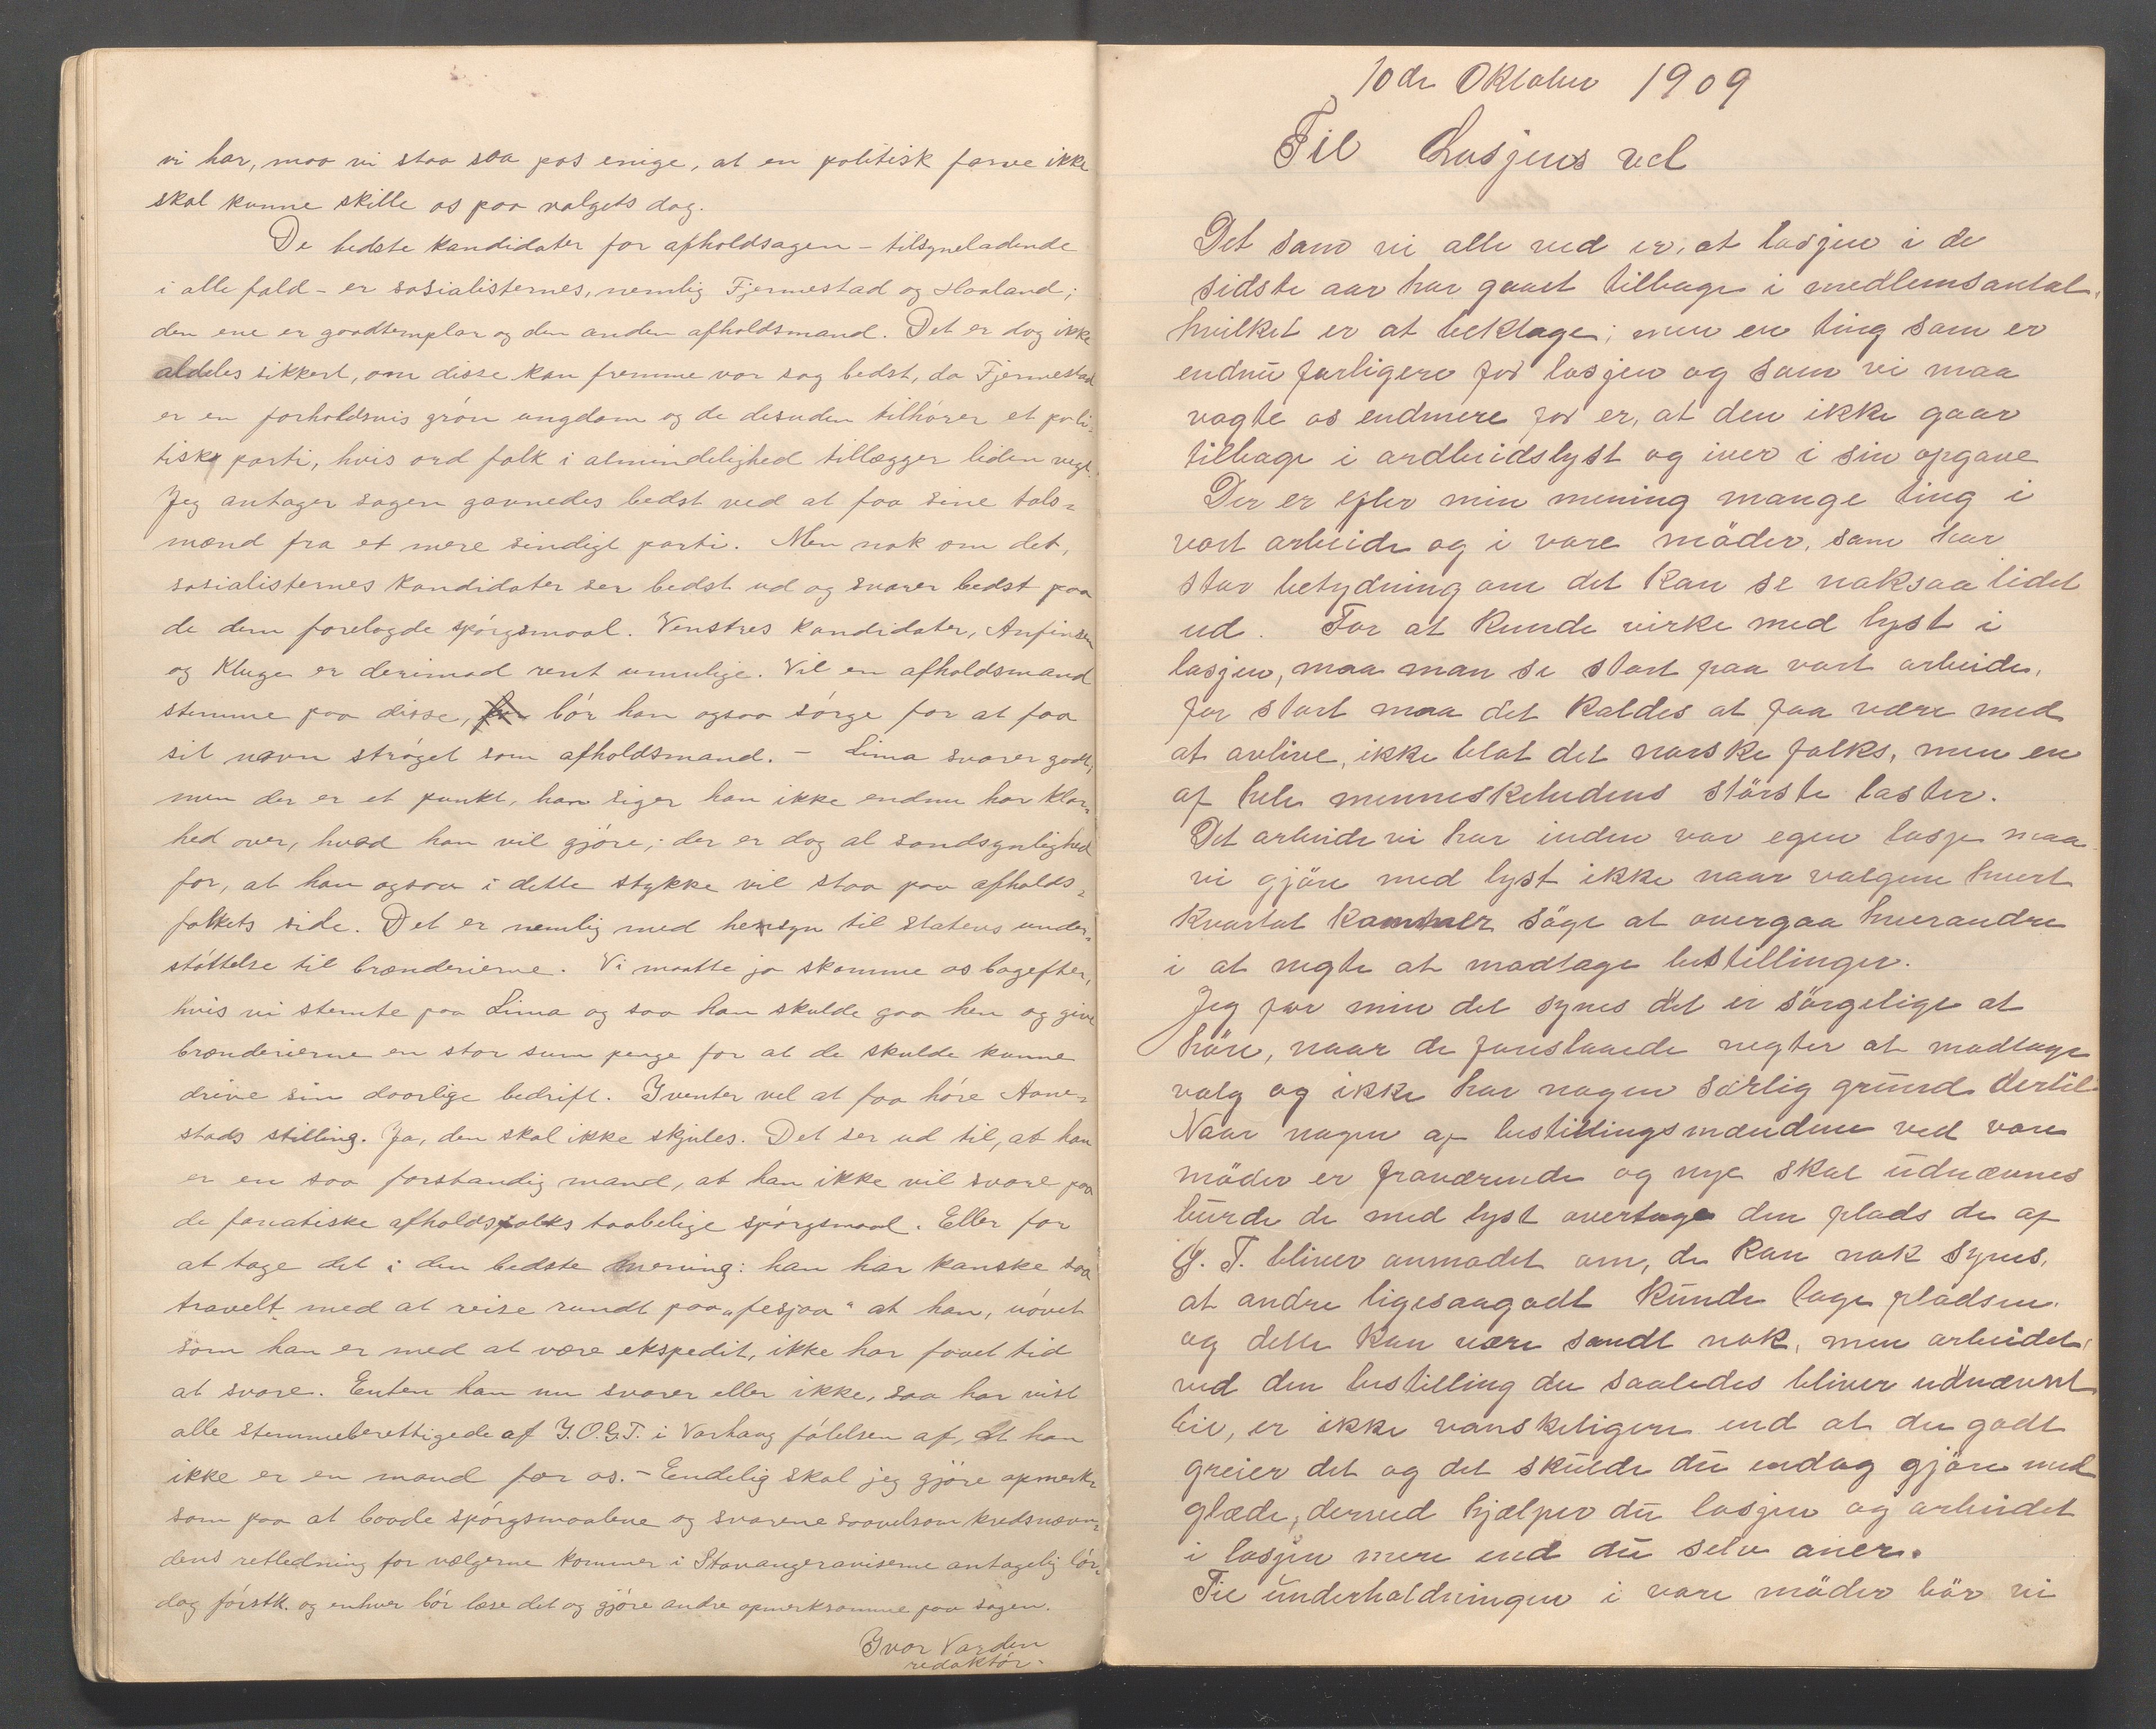 vi har, maa vi staa saa pas enige, at en politisk farve ikke
skal kunne skille os paa valgets dag.
De bedste kandidater for afholdsagen – tilsyneladende
i alle fald – er sosialisternes, nemlig Fjermestad og Haaland;
den ene er goodtemplar og den anden afholdsmand. Det er dog ikke
aldeles sikkert, om disse kan fremme vor sag bedst, da Fjermestad
er en forholdsvis grön ungdom og de desuden tilhörer et poli-
tisk parti, hvis ord folk i almindelighed tillægger liden vegt.
Jeg antager sagen gavnedes bedst ved at faa sine tals-
mænd fra et mere sindigt parti. Men nok om det,
sosialisternes kandidater ser bedst ud og svarer bedst paa
de dem forelagde spörgsmaal. Venstres kandidater, Anfinsen
og Kluge er derimod rent umulige. Vil en afholdsmand
stemme paa disse, bör han ogsaa sörge for at faa
sit navn ströget som afholdsmand. – Lima svarer godt,
men der er et punkt, han siger han ikke endnu har klar-
hed over, hvad han vil gjöre; der er dog al sandsynlighed
for, at han ogsaa i dette stykke vil staa paa afholds-
folkets side. Det er nemlig med hensyn til statens under-
stöttelse til brænderierne. Vi maatte ja skamme os bagefter,
hvis vi stemte paa Lima og saa han skulde gaa hen og give
brænderierne en stor sum penge for at de skulde kunne
drive sin daarlige bedrift. I venter vel at faa höre Aane-
stads stilling. Ja, den skal ikke skjules. Det ser ud til, at han
er en saa forstandig mand, at han ikke vil svare paa
de fanatiske afholdsfolks taabelige spörgsmaal. Eller for
at tage det i den bedste mening: han har kanske saa
travelt med at reise rundt paa „fesjaa" at han, uövet
som han er med at være ekspedit, ikke har faaet tid
at svare. Enten han nu svarer eller ikke, saa har vist
alle stemmeberettigede af I.O.G.T. i Varhaug fölelsen af, at han
ikke er en mand for os. – Endelig skal jeg gjöre opmerk-
som paa at baade spörgsmaalene og svarene saavelsom kredsnævn-
dens retledning for vælgerne kommer i Stavangeraviserne antagelig lör-
dag förstk. og enhver bör læse det og gjöre andre opmerksomme paa sagen.
Ivar Varden
redaktör.
10de Oktober 1909
Til Losjens vel
Det som vi alle ved er, at losjen i de
sidste aar har gaaet tilbage i medlemsantal,
hvilket er at beklage; men en ting som er
endnu farligere for losjen og som vi maa
vogte os endmere for er, at den ikke gaar
tilbage i ardbeidslyst og iver i sin opgave
Der er efter min mening mange ting i
vort arbeide og i vore möder, som har
stor betydning om det kan se noksaa lidet
ud. For at kunde virke med lyst i
losjen, maa man se stort paa vort arbeide,
for stort maa det kaldes at faa være med
at avlive, ikke blot det norske folks, men en
af hele menneskehedens störste laster.
Det arbeide vi har inden vor egen losje maa
vi gjöre med lyst ikke naar valgene hvert
kvartal kommer söge at overgaa hverandre
i at negte at modtage bestillinger.
Jeg for min del synes det er sörgelige at
höre, naar de foreslaaede negter at modtage
valg og ikke har nogen særlig grund dertil
Naar nogen af bestillingsmændene ved vore
möder er fraværende og nye skal udnævnes
burde de med lyst overtage den plads de af
G. T. bliver anmodet om, de kan nok synes,
at andre ligesaagodt kunde tage pladsen.
og dette kan være sandt nok, men arbeidet
ved den bestilling du saaledes bliver udnævnt
til, er ikke vanskeligere end at du godt
greier det og det skulde du endog gjöre med
glæde, derved hjælper du losjen og arbeidet
i losjen mere end du selv aner.
Til underholdningen i vore möder bör vi